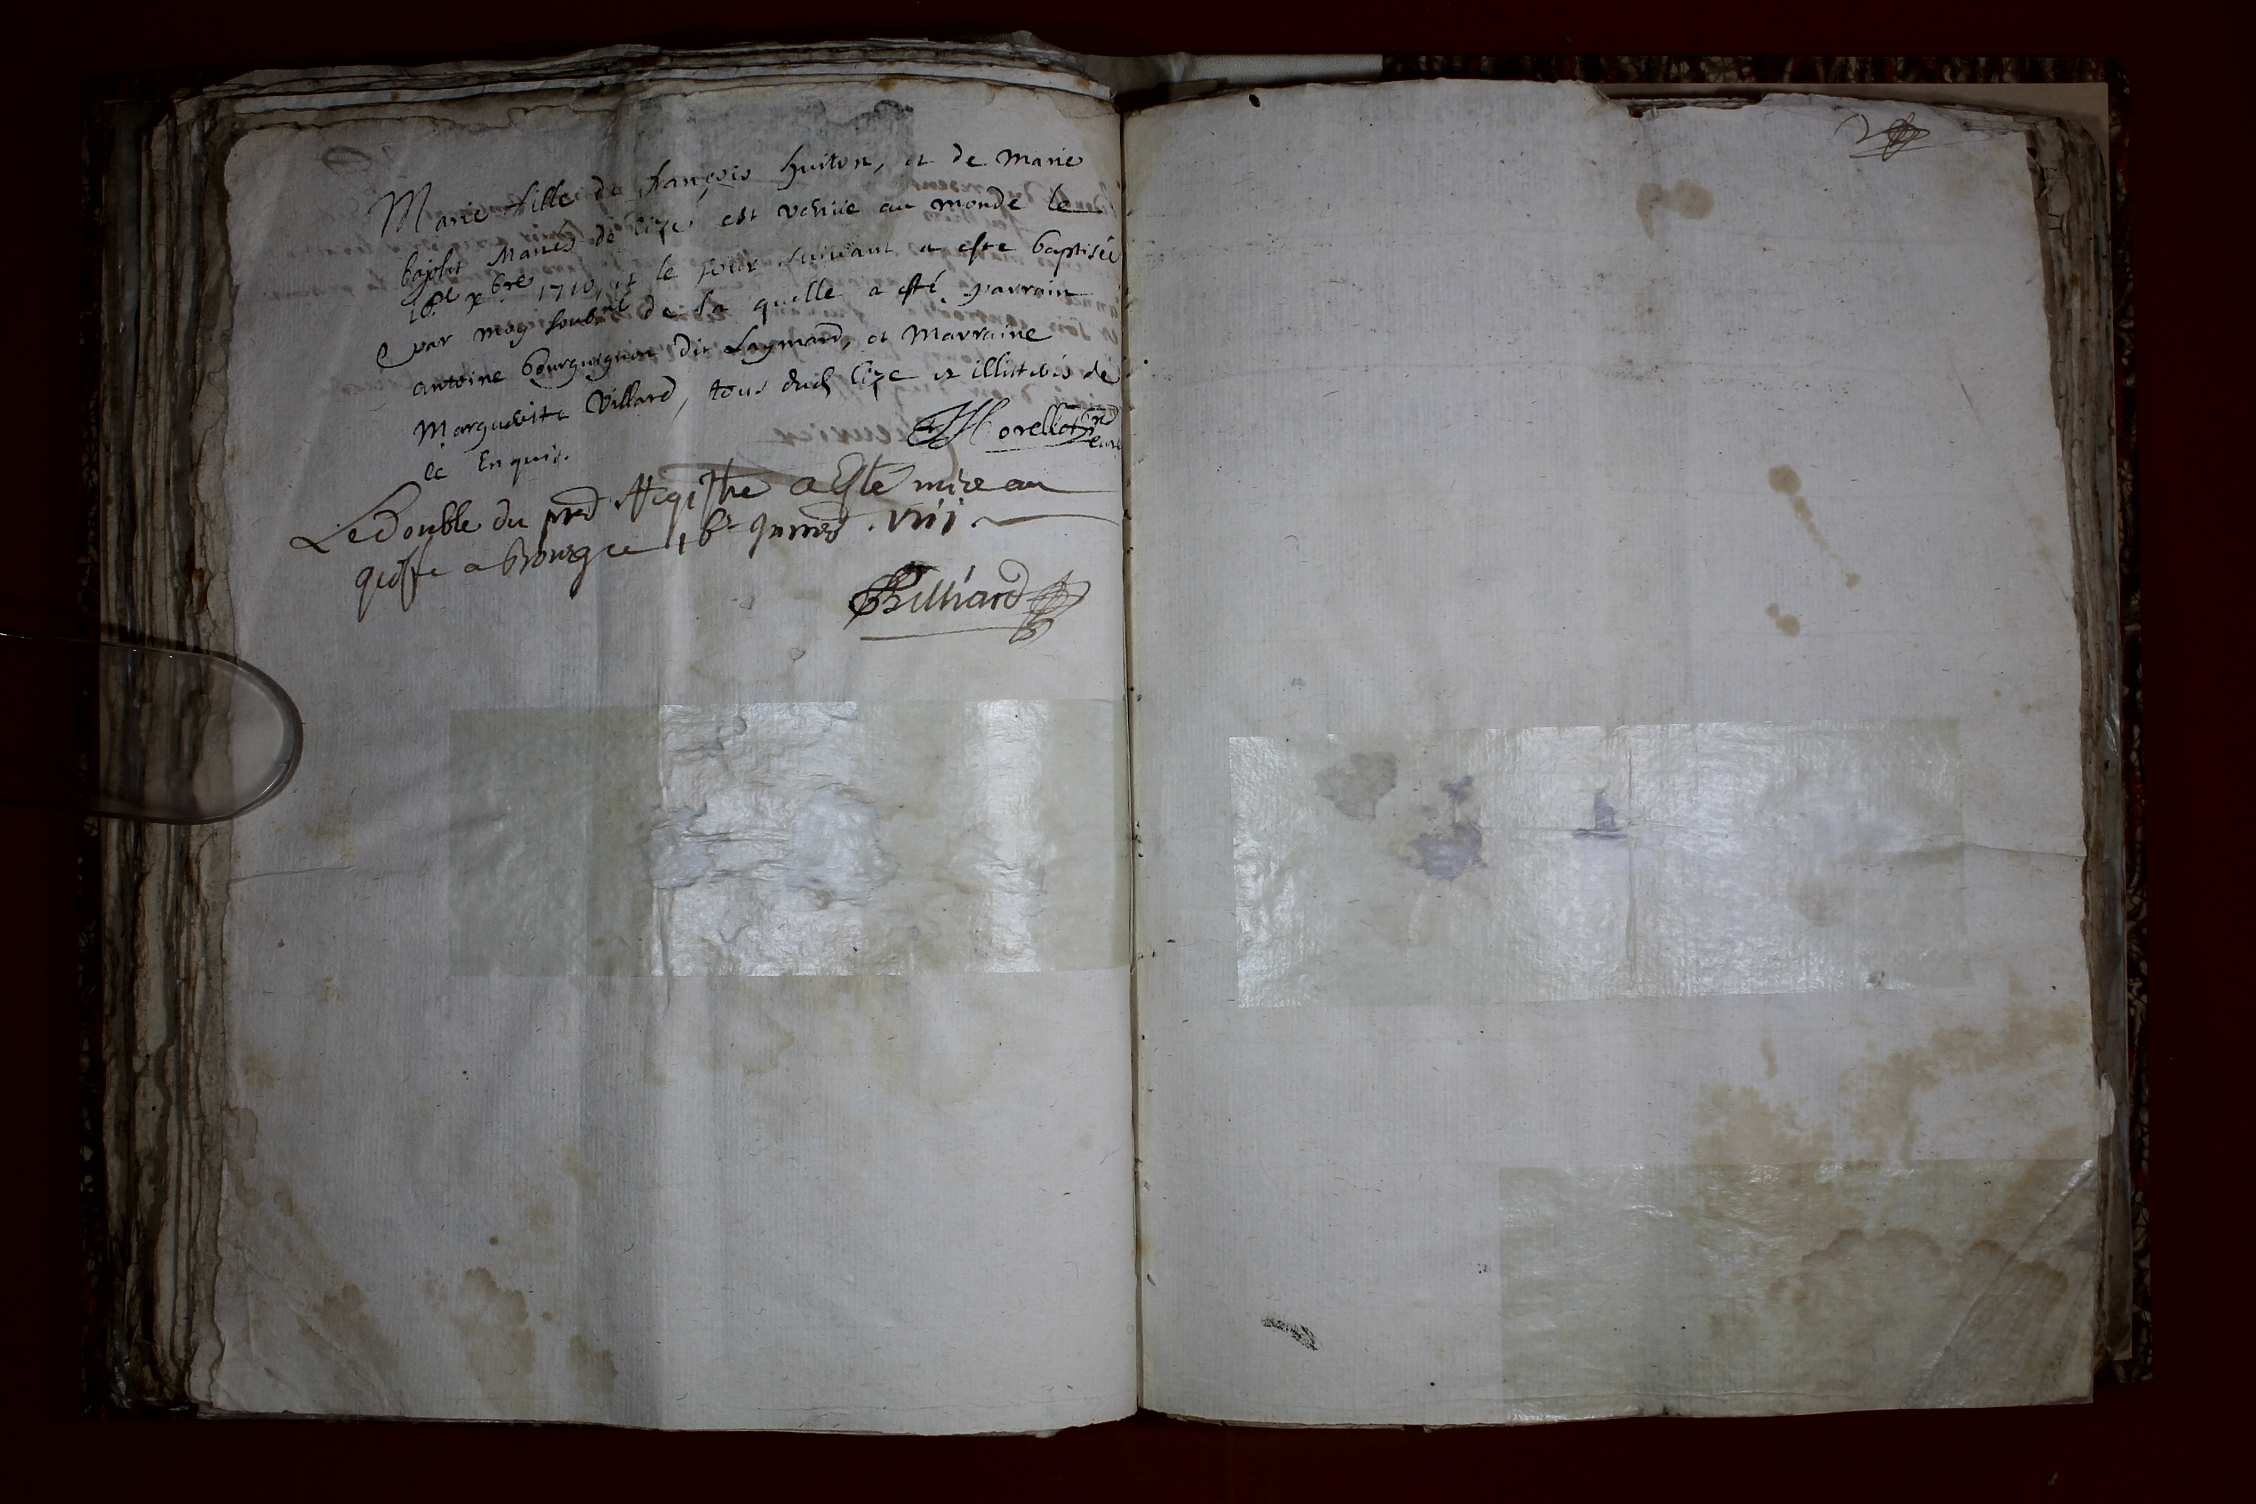 Marie fille de françois huiton, et de Marie
bajolet Mariés de lize est venüe au monde le
10e xbre 1710, et le jour suivant a este baptisée
par moy soubné de la quelle a esté parrain
antoine bourguignon dit Laymard, et Marraine
Marguerite Villard, tous dud lize et illitterés de
ce Enquis.
Morellet
Le double du prnt Registre a Esté mise au
greffe a bourg ce
Billiard